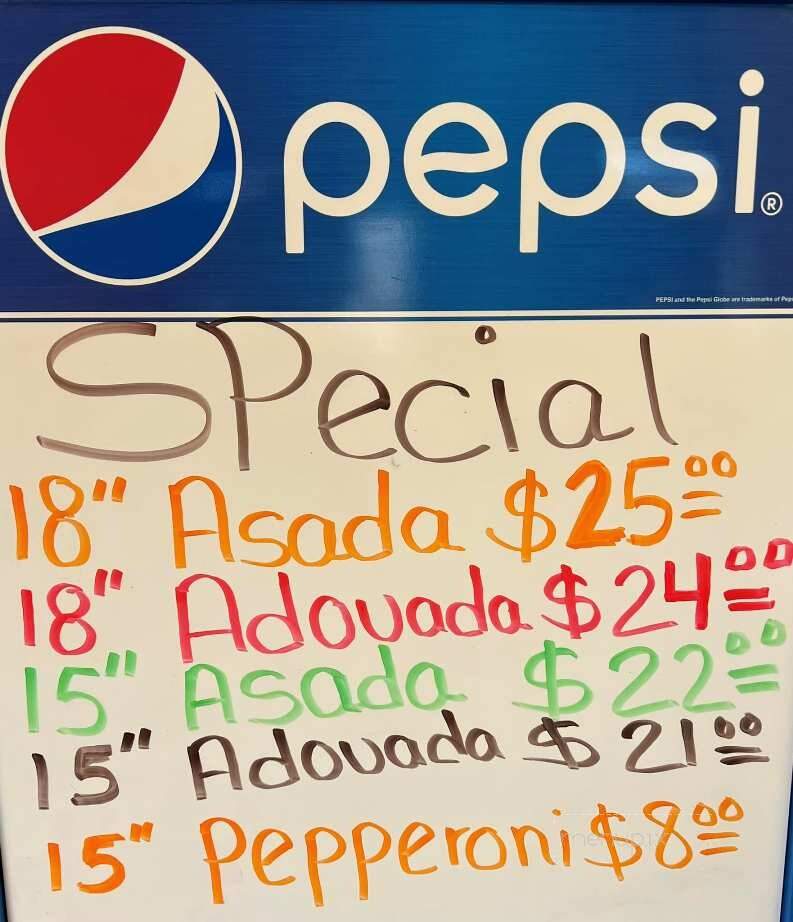 pepsi®
PEPSI and the Pepsi Globe are trademarks of Pep
SPecial
18" Asada $25.00
18" Adovada $24.00
15" Asada $22.00
15" Adovada $21.00
15" Pepperoni $8.00